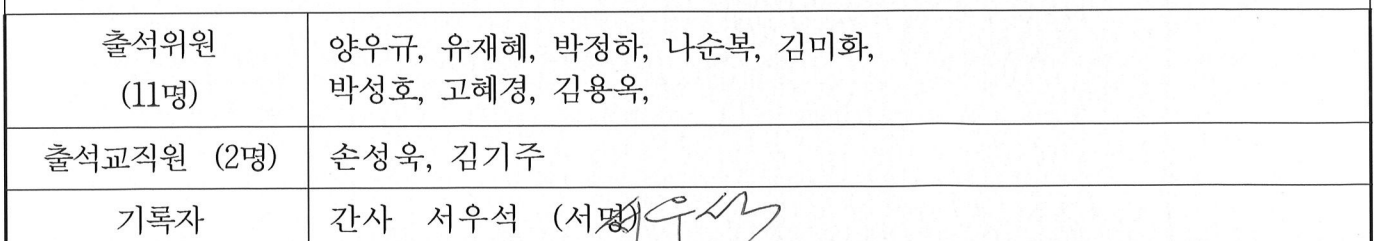 출석위원
(11명)
양우규, 유재혜, 박정하, 나순복, 김미화,
박성호, 고혜경, 김용옥,
출석교직원 (2명)
손성욱, 김기주
기록자
간사 서우석 (서명)